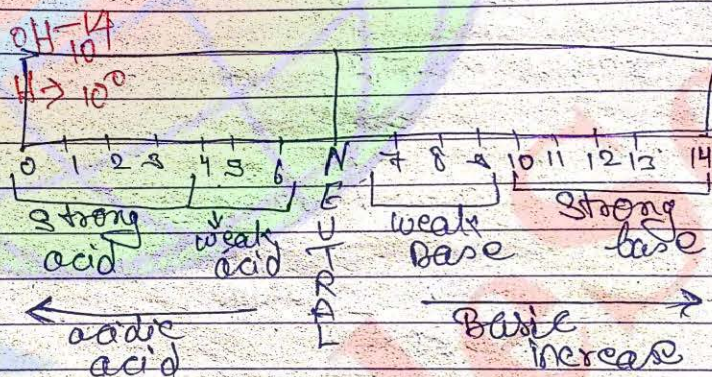 OH → 10^-14
H → 10^0
0 1 2 3 4 5 6 N 7 8 9 10 11 12 13 14
E
U
T
R
A
L
strong acid
weak acid
weak Base
strong base
acidic acid
Basic increase